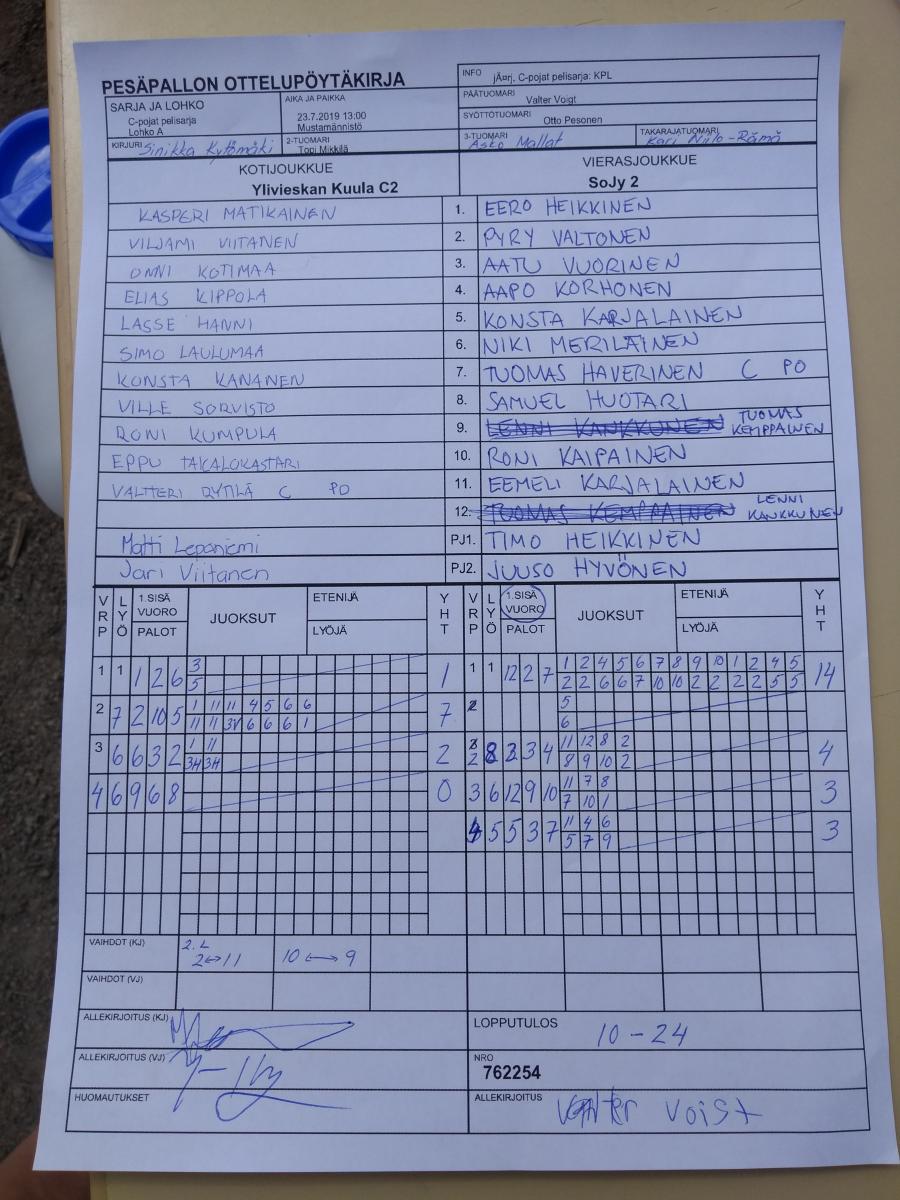 PESÄPALLON OTTELUPÖYTÄKIRJA
INFO jÄ¤rj. C-pojat pelisarja: KPL
PÄÄTUOMARI Valter Voigt
SYÖTTÖTUOMARI Otto Pesonen
SARJA JA LOHKO
C-pojat pelisarja
Lohko A
AIKA JA PAIKKA
23.7.2019 13:00
Mustamännistö
KIRJURI Sinikka Kytömäki
2-TUOMARI Topi Mikkilä
3-TUOMARI Asko Mallat
TAKARAJATUOMARI Kari Niilo-Rämä
KOTIJOUKKUE VIERASJOUKKUE
Ylivieskan Kuula C2 SoJy 2
KASPERI MATIKAINEN 1. EERO HEIKKINEN
VILJAMI VIITANEN 2. PYRY VALTONEN
ONNI KOTIMAA 3. AATU VUORINEN
ELIAS KIPPOLA 4. AAPO KORHONEN
LASSE HANNI 5. KONSTA KARJALAINEN
SIMO LAULUMAA 6. NIKI MERILÄINEN
KONSTA KANANEN 7. TUOMAS HAVERINEN C PO
VILLE SORVISTO 8. SAMUEL HUOTARI
RONI KUMPULA 9. LENNI KANKKUNEN TUOMAS KEMPPAINEN
EPPU TAKALOKASTARI 10. RONI KAIPAINEN
VALTTERI RYTILÄ C PO 11. EEMELI KARJALAINEN
12. TUOMAS KEMPPAINEN LENNI KANKKUNEN
Matti Lepäniemi PJ1. TIMO HEIKKINEN
Jari Viitanen PJ2. JUUSO HYVÖNEN
VRP LYÖ 1.SISÄ VUORO PALOT JUOKSUT ETENIJÄ LYÖJÄ YHT VRP LYÖ 1.SISÄ VUORO PALOT JUOKSUT ETENIJÄ LYÖJÄ YHT
1 1 1 2 6 3 1 1 1 12 2 7 1 2 4 5 6 7 8 9 10 1 2 4 5 14
5 2 2 6 6 7 10 10 2 2 2 2 5 5
2 7 2 10 5 1 11 11 4 5 6 6 7 2 5
11 11 3V 6 6 6 1 6
3 6 6 3 2 1 11 2 2 8 2 3 4 11 12 8 2 4
3H 3H 8 9 10 2
4 6 9 6 8 0 3 6 12 9 10 11 7 8 3
7 10 1
4 5 5 3 7 11 4 6 3
5 7 9
VAIHDOT (KJ) 2.L 2↔11 10↔9
VAIHDOT (VJ)
ALLEKIRJOITUS (KJ) LOPPUTULOS 10-24
ALLEKIRJOITUS (VJ) NRO 762254
HUOMAUTUKSET ALLEKIRJOITUS Valter Voist